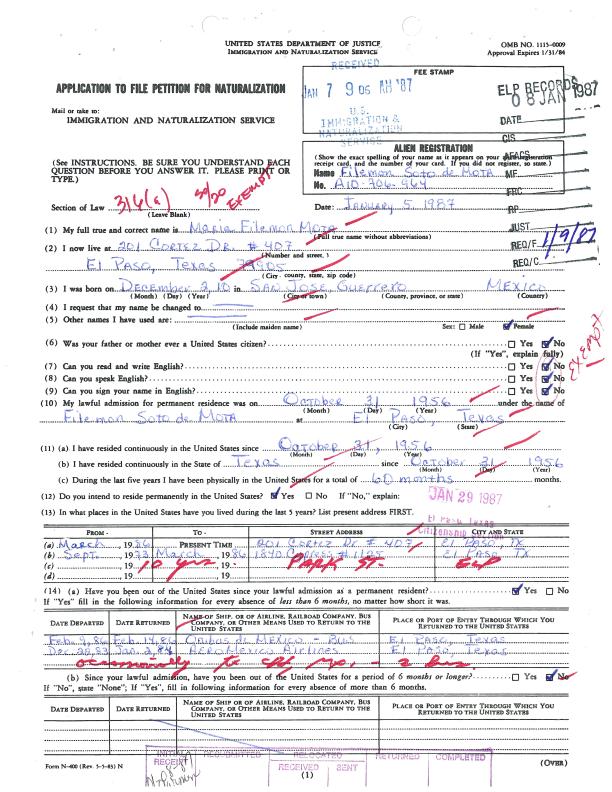 UNITED STATES DEPARTMENT OF JUSTICE
IMMIGRATION AND NATURALIZATION SERVICE
OMB NO. 1115-0009
Approval Expires 1/31/86
RECEIVED
FEE STAMP
JAN 7 9 06 AM '87
U.S. IMMIGRATION & NATURALIZATION SERVICE
ELP RECORDS
08 JAN 1987
DATE
CIS
AFACS
MF
FRC
RP
JUST.
REQ/F 1/9/87
REQ/C
APPLICATION TO FILE PETITION FOR NATURALIZATION
Mail or take to:
IMMIGRATION AND NATURALIZATION SERVICE
ALIEN REGISTRATION
(See INSTRUCTIONS. BE SURE YOU UNDERSTAND EACH QUESTION BEFORE YOU ANSWER IT. PLEASE PRINT OR TYPE.)
(Show the exact spelling of your name as it appears on your registration receipt card, and the number of your card. If you did not register, so state.)
Name Filemon Soto de Mota
No. A10-706-964
Section of Law 316(a) 50/20 EXEMPT
(Leave Blank)
Date: January 5, 1987
(1) My full true and correct name is Maria Filemon Mota
(Full true name without abbreviations)
(2) I now live at 201 Cortez Dr. # 407
(Number and street, )
El Paso, Texas 79905
(City, county, state, zip code)
(3) I was born on December 2, 10 in San Jose, Guerrero MEXICO
(Month) (Day) (Year) (City or town) (County, province, or state) (Country)
(4) I request that my name be changed to
(5) Other names I have used are:
(Include maiden name) Sex: Male Female
(6) Was your father or mother ever a United States citizen? Yes No
(If "Yes", explain fully)
(7) Can you read and write English? Yes No
(8) Can you speak English? Yes No
(9) Can you sign your name in English? Yes No
EXEMPT
(10) My lawful admission for permanent residence was on October 31 1956 under the name of
(Month) (Day) (Year)
Filemon Soto de Mota at El Paso, Texas
(City) (State)
(11) (a) I have resided continuously in the United States since October 31, 1956
(Month) (Day) (Year)
(b) I have resided continuously in the State of Texas since October 31 1956
(Month) (Day) (Year)
(c) During the last five years I have been physically in the United States for a total of 60 months months.
(12) Do you intend to reside permanently in the United States? Yes No If "No," explain:
JAN 29 1987
(13) In what places in the United States have you lived during the last 5 years? List present address FIRST.
FROM - TO - STREET ADDRESS CITY AND STATE
(a) March, 1986 PRESENT TIME 201 Cortez Dr. # 407 El Paso, TX
(b) Sept., 1973 March, 1986 El Paso, TX
(c) , 19 10 yrs , 19 PARK ST- ELP
(d) , 19 , 19
(14) (a) Have you been out of the United States since your lawful admission as a permanent resident? Yes No
If "Yes" fill in the following information for every absence of less than 6 months, no matter how short it was.
DATE DEPARTED DATE RETURNED NAME OF SHIP, OR OF AIRLINE, RAILROAD COMPANY, BUS COMPANY, OR OTHER MEANS USED TO RETURN TO THE UNITED STATES PLACE OR PORT OF ENTRY THROUGH WHICH YOU RETURNED TO THE UNITED STATES
Feb. 7, 86 Feb. 14, 86 Onibus de Mexico - Bus El Paso, Texas
Dec. 22, 83 Jan. 2, 84 AeroMexico Airlines El Paso, Texas
occasionally to
(b) Since your lawful admission, have you been out of the United States for a period of 6 months or longer? Yes No
If "No", state "None"; If "Yes", fill in following information for every absence of more than 6 months.
DATE DEPARTED DATE RETURNED NAME OF SHIP, OR OF AIRLINE, RAILROAD COMPANY, BUS COMPANY, OR OTHER MEANS USED TO RETURN TO THE UNITED STATES PLACE OR PORT OF ENTRY THROUGH WHICH YOU RETURNED TO THE UNITED STATES
Form N-400 (Rev. 5-5-83) N
INITIAL RECEIPT
RESUBMITTED
RELOCATED
RECEIVED SENT
RETURNED COMPLETED
(1)
(OVER)